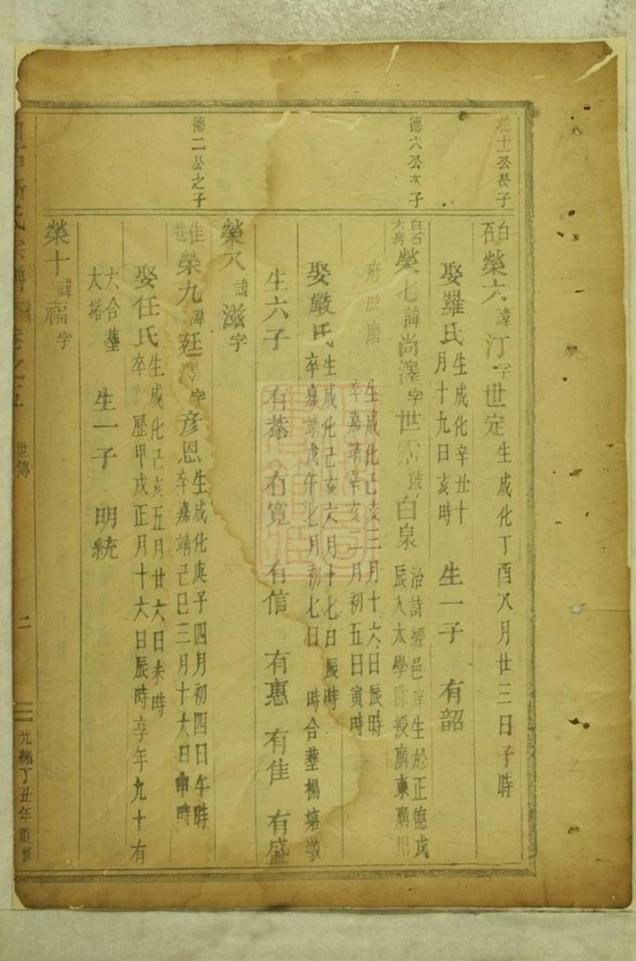 德十一公長子
白石 榮六 諱汀 字世定 生成化丁酉八月廿三日子時
娶羅氏 生成化辛丑十月十九日亥時 生一子 有韶
德六公次子
白石大房 榮七 諱尚澤 字世霑 號白泉 治詩經邑庠生於正德戊辰入太學除授廣東廣州
府照磨 生成化己亥三月十六日辰時卒嘉靖辛亥二月初五日寅時
娶嚴氏 生成化己亥六月十七日辰時卒嘉靖戊午七月初七日 時合塟楊塘墩
生六子 有棻 有寬 有信 有惠 有佳 有盛
榮八 諱滋 字
德二公之子
佳巷 榮九 諱廷澤 字彥恩 生成化庚子四月初四日午時卒嘉靖己巳三月十六日申時
娶任氏 生成化己亥五月廿六日未時卒萬歷甲戌正月十六日辰時享年九十有
六合塟大塔 生一子 明統
榮十 諱福 字
氏宗譜 卷之五 世傳 二 光緒丁丑年重修